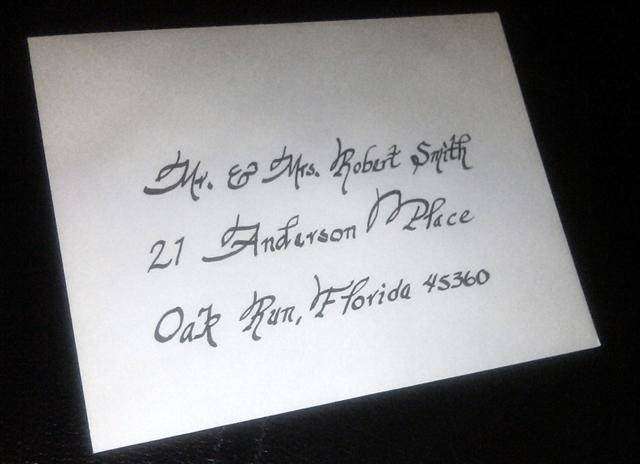 Mr. & Mrs. Robert Smith
21 Anderson Place
Oak Run, Florida 45360